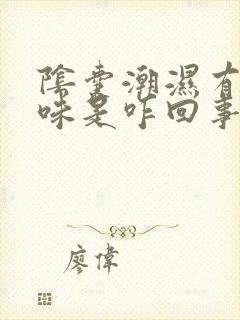 陰囊潮濕有
味是咋回事
廖偉